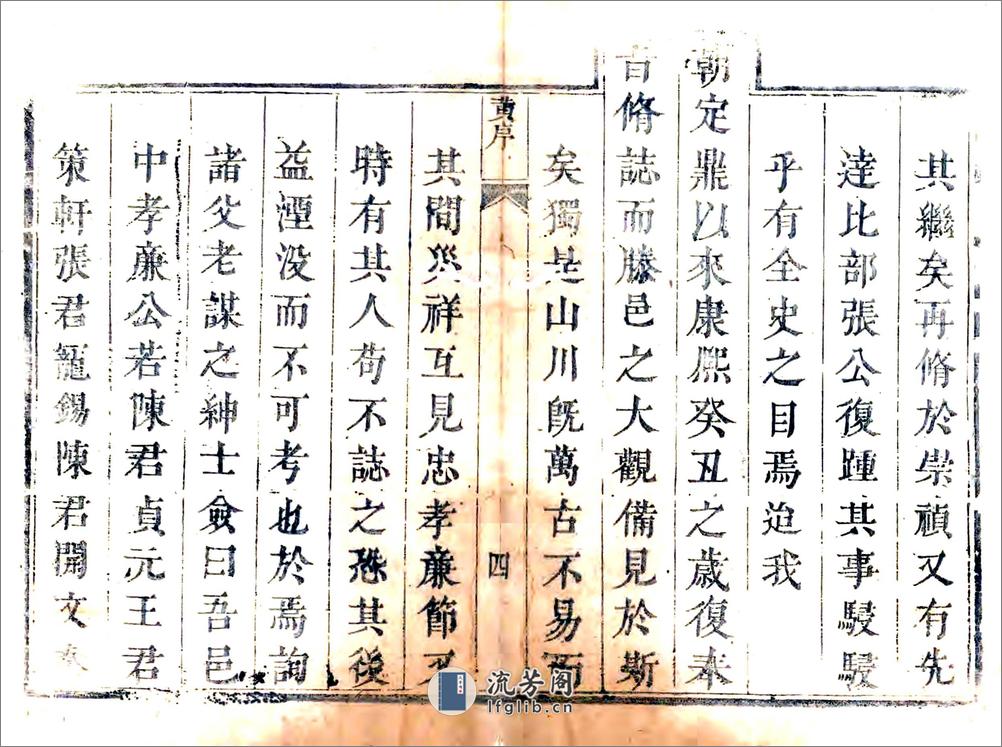 其繼矣再脩於崇禎又有先
達比部張公復踵其事駸駸
乎有全史之目焉迨我
朝定鼎以來康熙癸丑之歲復奉
旨脩誌而滕邑之大觀備見於斯
矣獨是山川旣萬古不易而
黃序
四
其間災祥互見忠孝亷節又
時有其人苟不誌之恐其後
益湮没而不可考也於焉詢
諸父老謀之紳士僉曰吾邑
中孝亷公若陳君貞元王君
策軒張君寵錫陳君開文
流芳阁
lfglib.cn